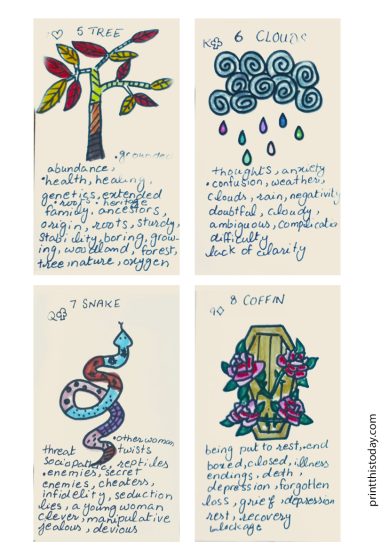 ♡ 5 TREE
• grounded
abundance,
•health, healing,
genetics, extended
• roots • heritage
family, ancestors,
origin, roots, sturdy,
stability, boring, grow-
ing, woodland, forest,
tree, nature, oxygen
K♣ 6 CLOUDS
thoughts, anxiety
•confusion, weather,
clouds, rain, negativity
doubtful, cloudy,
ambiguous, complicated
difficulty
lack of clarity
7 SNAKE
Q♣
•other woman
threat twists
sociopathic, reptiles
•enemies, secret
enemies, cheaters,
infidelity, seduction
lies, a young woman
clever, manipulative
jealous, devious
8 COFFIN
9♢
being put to rest, end
boxed, closed, illness
endings, death,
depression, forgotten
loss, grief •depression
rest, recovery
blockage
printthistoday.com